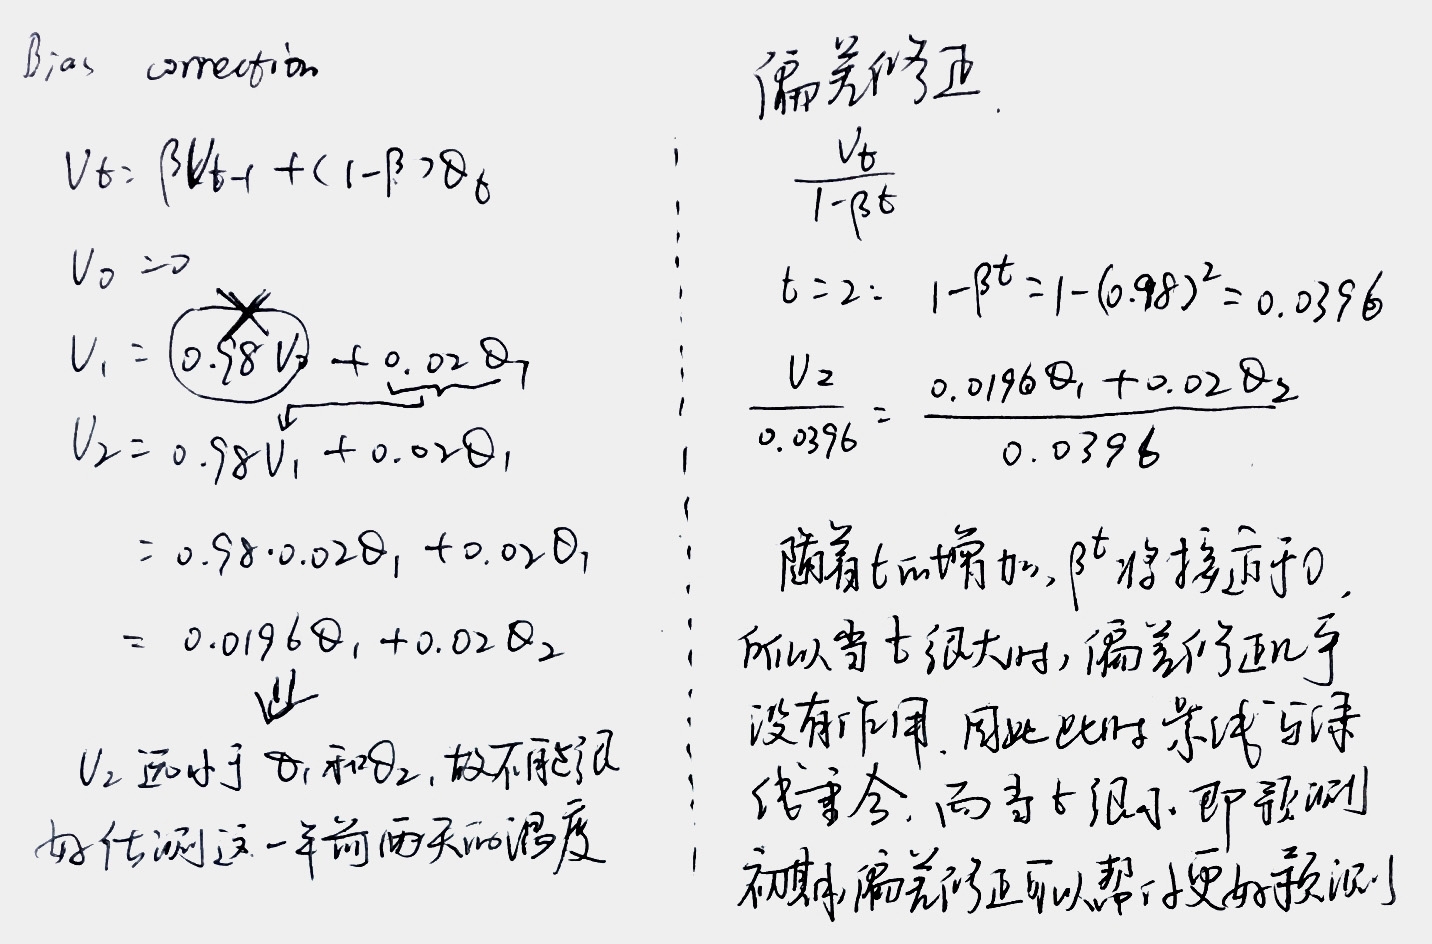 Bias correction
Vt = βVt-1 + (1-β)θt
V0 = 0
V1 = 0.98V0 + 0.02θ1
V2 = 0.98V1 + 0.02θ1
= 0.98·0.02θ1 + 0.02θ1
= 0.0196θ1 + 0.02θ2
V2远小于θ1和θ2,故不能很
好估测这一年前两天的温度
偏差修正.
Vt
1-βt
t=2: 1-β^t = 1-(0.98)^2 = 0.0396
V2 / 0.0396 = (0.0196θ1 + 0.02θ2) / 0.0396
随着t的增加,β^t将接近于0,
所以当t很大时,偏差修正几乎
没有作用.因此此时紫线与绿
线重合.而当t很小.即预测
初期,偏差修正可以帮付更好预测